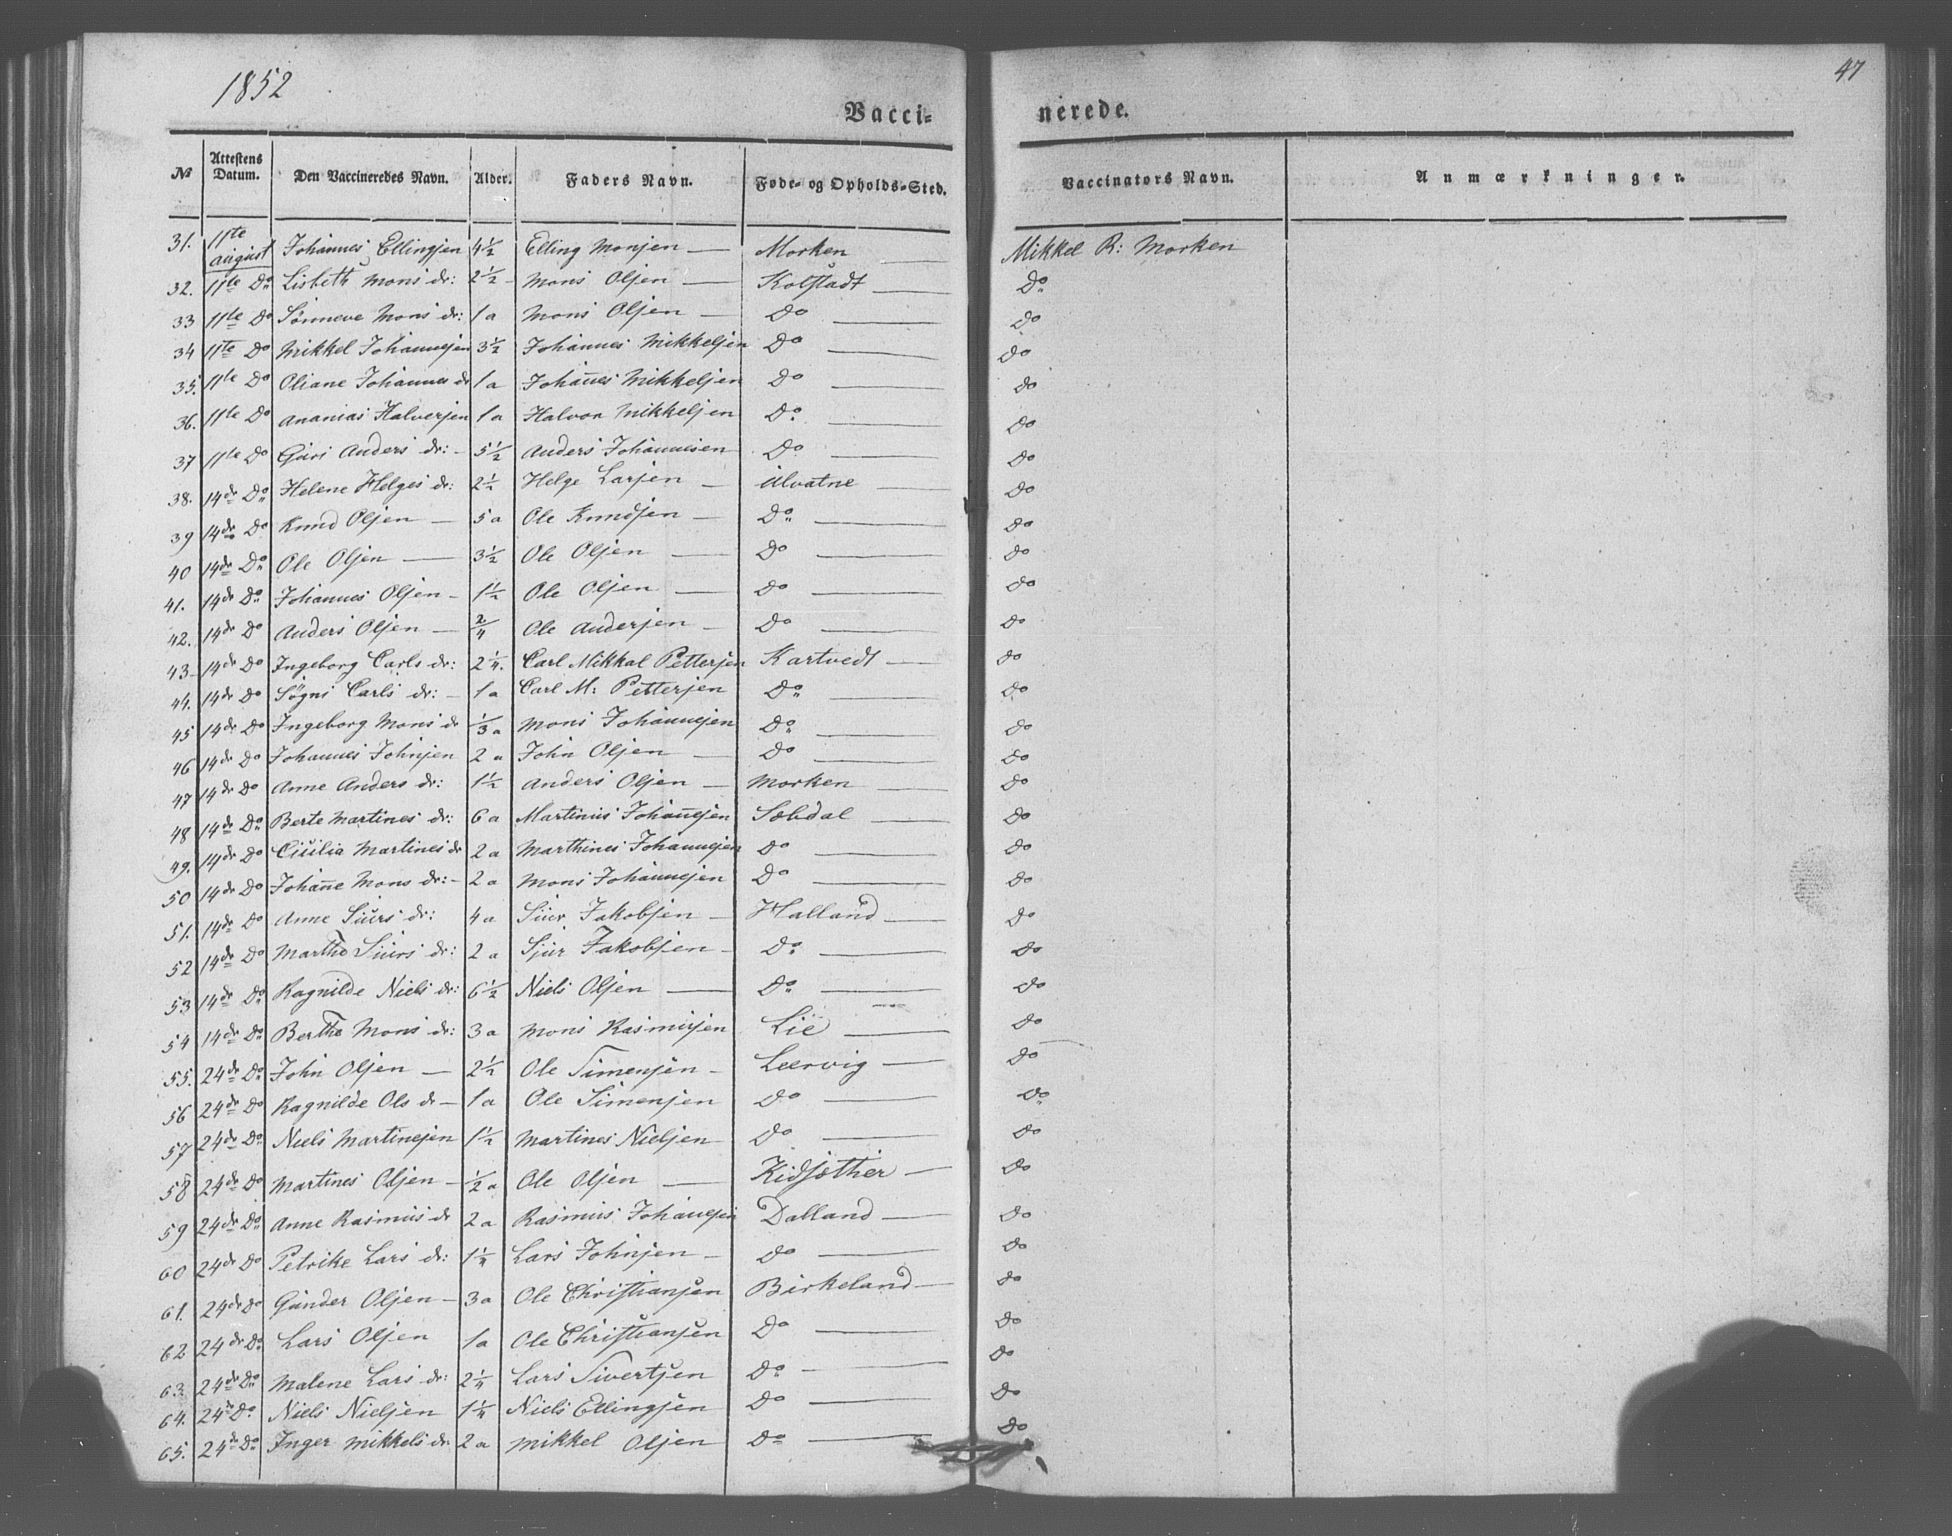 1852
47
Vacci-
nerede.
No Attestens Datum. Den Vaccineredes Navn. Alder. Faders Navn. Føde- og Opholds-Sted. Vaccinators Navn. Anmærkninger.
31. 11te august Johannes Ellingsen 4½ Elling Monsen — Morken — Mikkel R: Morken
32. 11te Do Lisbeth Mons dr: 2½ Mons Olsen — Kolstadt — Do
33 11te Do Sønneve Mons dr: 1a Mons Olsen — Do — Do
34 11te Do Mikkel Johannesen 3½ Johannes Mikkelsen Do — Do
35. 11te Do Oliane Johannes dr 1a Johan̄es Mikkelsen Do — Do
36. 11te Do Ananias Halversen 1a Halvor Mikkelsen Do — Do
37 11te Do Guri Anders dr: - 5½ Anders Johannesen Do — Do
38. 14de Do Helene Helges dr: 2½ Helge Larsen — Ulvatne — Do
39 14de Do Knud Olsen — 5a Ole Knudsen — Do — Do
40 14de Do Ole Olsen — 3½ Ole Olsen — Do — Do
41. 14de Do Johannes Olsen - 1½ Ole Olsen — Do — Do
42. 14de Do Anders Olsen — 2/4 Ole Andersen — Do — Do
43- 14de Do Ingeborg Carls dr: 2¼. Carl Mikkal Pettersen Kartvedt — Do
44. 14de Do Søgni Carls dr: - 1a Carl M: Pettersen Do — Do
45 14de Do Ingeborg Mons dr ⅓a Mons Johannesen Do — Do
46 14de Do Johannes Johnsen 2a John Olsen — Do — Do
47 14de Do Anne Anders dr: 1½ Anders Olsen — Morken — Do
48 14de Do Berte Martines dr: 6a Martinus Johan̄esen Sæbdal — Do
49. 14de Do Cicilia Martines dr 2a Marthines Johannesen Do — Do
50 14de Do Johan̄e Mons dr: - 2a Mons Johannesen Do — Do
51. 14de Do Anne Siurs dr: 4a Siur Jakobsen — Halland — Do
52 14de Do Marthe Siurs dr: 2a Sjur Jakobsen — Do — Do
53 14de Do Ragnilde Niels dr: 6½ Niels Olsen — Do — Do
54 14de Do Berthe Mons dr: 3a Mons Rasmusen Lie — Do
55. 24de Do John Olsen — 2½ Ole Simensen - Leervig — Do
56 24de Do Ragnilde Ols dr — 1a Ole Simensen Do — Do
57 24de Do Niels Martinesen 1½ Martines Nielsen Do — Do
58 24de Do Martines Olsen - ½a Ole Olsen — Kidsæther — Do
59 24de Do Anne Rasmus dr 2a Rasmus Johanesen Dalland — Do
60 24de Do Petrike Lars dr: 1¼ Lars Johnsen — Do — Do
61. 24de Do Gunder Olsen — 3a Ole Christiansen Birkeland — Do
62 24de Do Lars Olsen 1a Ole Christiansen Do — Do
63. 24de Do Malene Lars dr: 2¼ Lars Sivertsen Do — Do
64. 24de Do Niels Nielsen 1¼ Niels Ellingsen Do — Do
65. 24de Do Inger Mikkels dr: 2a Mikkel Olsen Do — Do